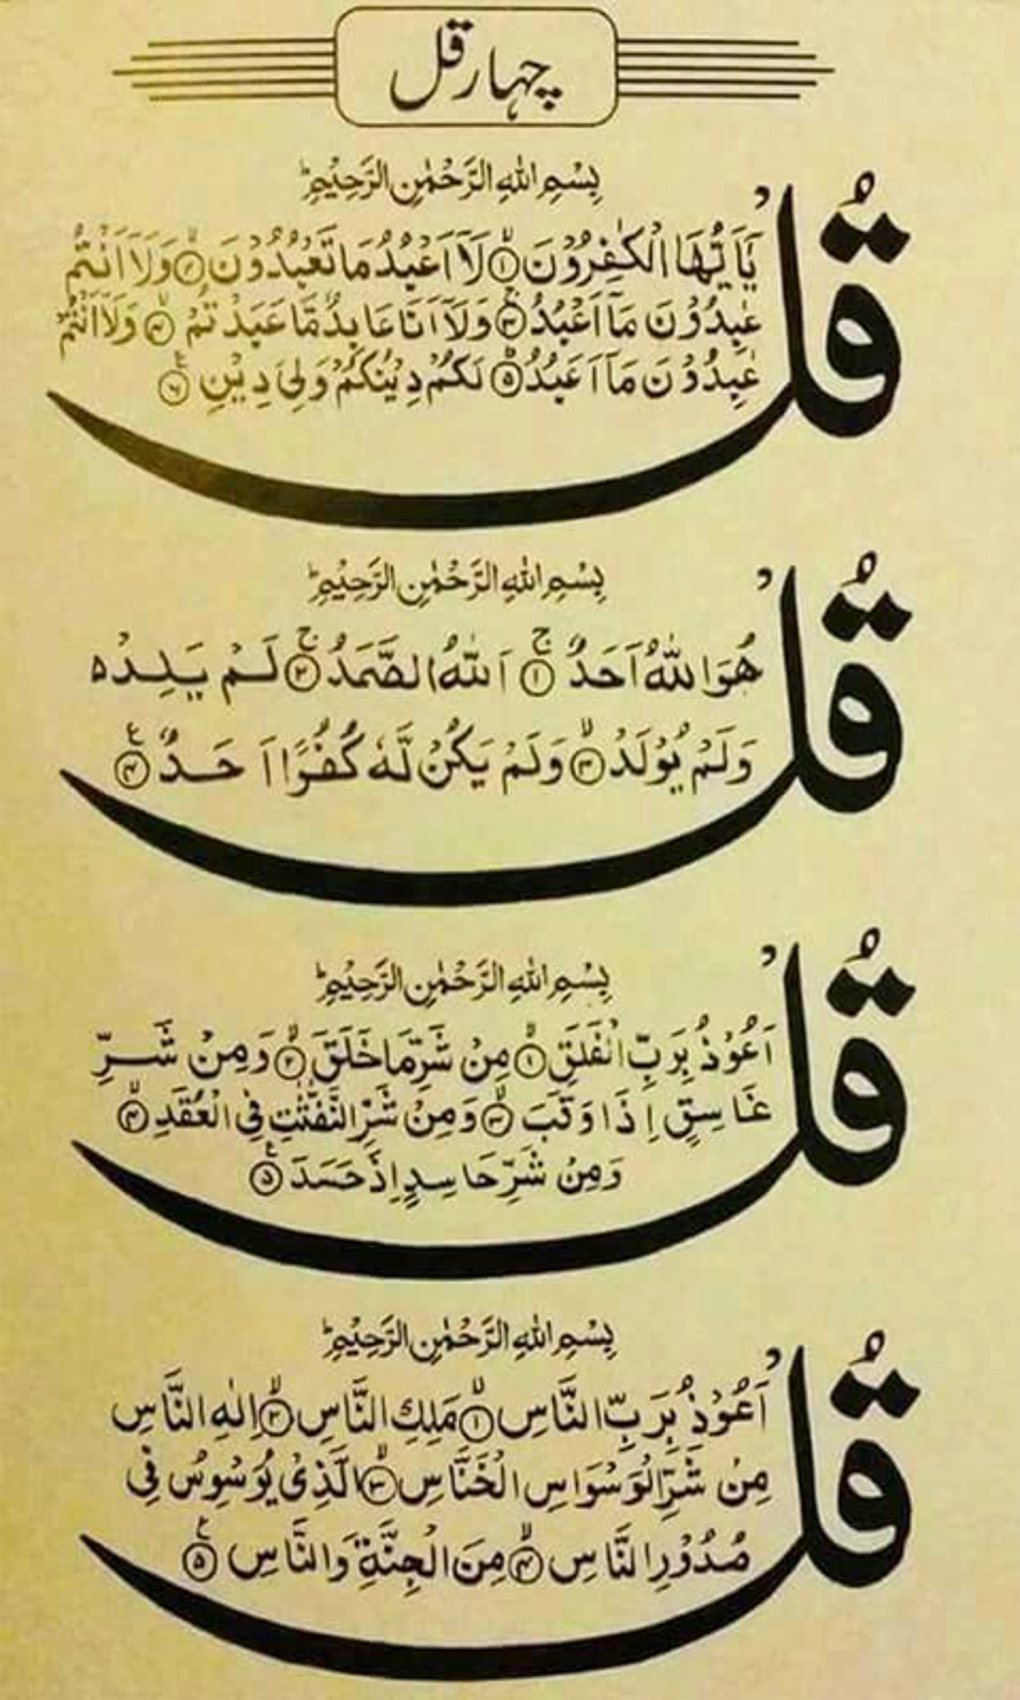 چہار قل
بِسْمِ اللهِ الرَّحْمٰنِ الرَّحِيْمِ ؕ
قُلْ
يٰۤاَيُّهَا الْكٰفِرُوْنَ ۙ۝۱ لَاۤ اَعْبُدُ مَا تَعْبُدُوْنَ ۙ۝۲ وَلَاۤ اَنْتُمْ
عٰبِدُوْنَ مَاۤ اَعْبُدُ ۚ۝۳ وَلَاۤ اَنَا عَابِدٌ مَّا عَبَدْتُّمْ ۙ۝۴ وَلَاۤ اَنْتُمْ
عٰبِدُوْنَ مَاۤ اَعْبُدُ ؕ۝۵ لَكُمْ دِيْنُكُمْ وَلِيَ دِيْنِ ۠۝۶
بِسْمِ اللهِ الرَّحْمٰنِ الرَّحِيْمِ ؕ
قُلْ
هُوَ اللهُ اَحَدٌ ۚ۝۱ اَللهُ الصَّمَدُ ۚ۝۲ لَمْ يَلِدْ ەۙ
وَلَمْ يُوْلَدْ ۙ۝۳ وَلَمْ يَكُنْ لَّهٗ كُفُوًا اَحَدٌ ۠۝۴
بِسْمِ اللهِ الرَّحْمٰنِ الرَّحِيْمِ ؕ
قُلْ
اَعُوْذُ بِرَبِّ الْفَلَقِ ۙ۝۱ مِنْ شَرِّ مَا خَلَقَ ۙ۝۲ وَمِنْ شَرِّ
غَاسِقٍ اِذَا وَقَبَ ۙ۝۳ وَمِنْ شَرِّ النَّفّٰثٰتِ فِي الْعُقَدِ ۙ۝۴
وَمِنْ شَرِّ حَاسِدٍ اِذَا حَسَدَ ۠۝۵
بِسْمِ اللهِ الرَّحْمٰنِ الرَّحِيْمِ ؕ
قُلْ
اَعُوْذُ بِرَبِّ النَّاسِ ۙ۝۱ مَلِكِ النَّاسِ ۙ۝۲ اِلٰهِ النَّاسِ
مِنْ شَرِّ الْوَسْوَاسِ الْخَنَّاسِ ۙ۝۳ الَّذِيْ يُوَسْوِسُ فِيْ
صُدُوْرِ النَّاسِ ۙ۝۴ مِنَ الْجِنَّةِ وَالنَّاسِ ۠۝۵